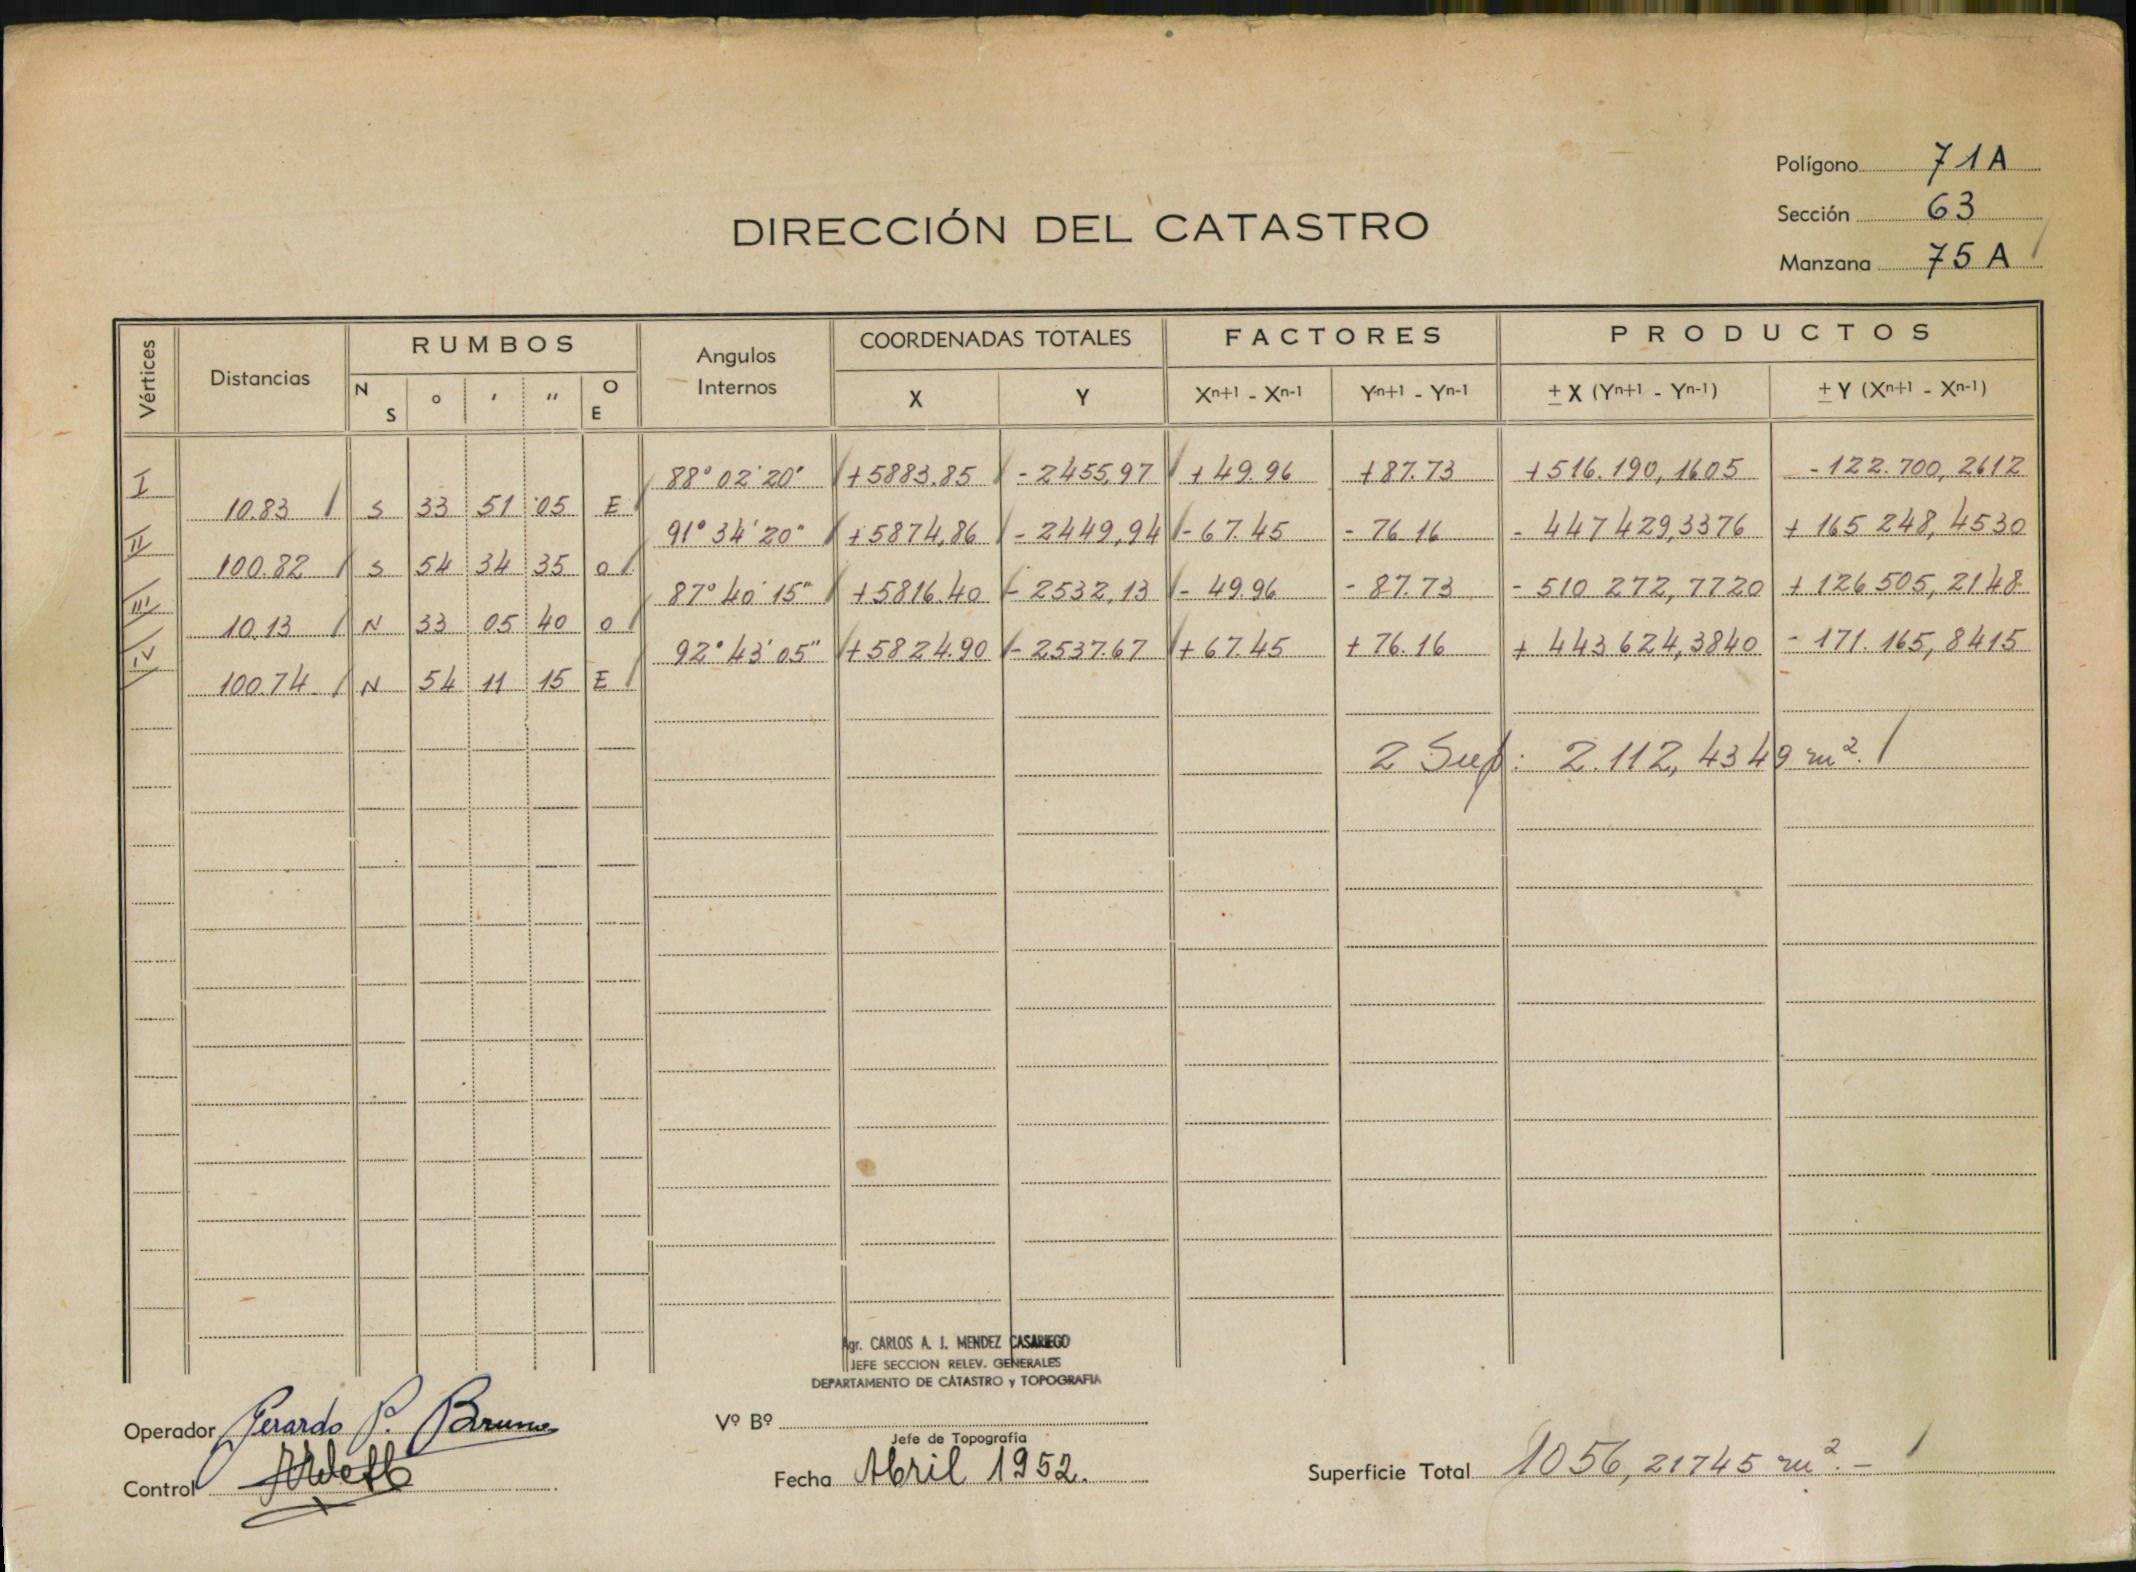 Polígono 71A
Sección 63
DIRECCIÓN DEL CATASTRO
Manzana 75 A
Vértices Distancias RUMBOS Angulos Internos COORDENADAS TOTALES FACTORES PRODUCTOS
N S ° ' " O E X Y Xn+1 - Xn-1 Yn+1 - Yn-1 ± X (Yn+1 - Yn-1) ± Y (Xn+1 - Xn-1)
I 88° 02' 20" +5883.85 -2455,97 +49.96 +87.73 +516.190,1605 -122.700,2612
10.83 S 33 51 05 E
II 91° 34' 20" +5874,86 -2449,94 -67.45 -76.16 -447429,3376 +165 248,4530
100.82 S 54 34 35 O
III 87° 40' 15" +5816.40 -2532,13 -49.96 -87.73 -510 272,7720 +126 505,2148
10.13 N 33 05 40 O
IV 92° 43' 05" +5824.90 -2537.67 +67.45 +76.16 +443 624,3840 -171.165,8415
100.74 N 54 11 15 E
2 Sup: 2.112,4349 m².
Agr. CARLOS A. J. MENDEZ CASARIEGO
JEFE SECCION RELEV. GENERALES
DEPARTAMENTO DE CATASTRO y TOPOGRAFIA
Operador Gerardo P. Bruno
Vº Bº
Jefe de Topografía
Control
Fecha Abril 1952.
Superficie Total 1056,21745 m².-